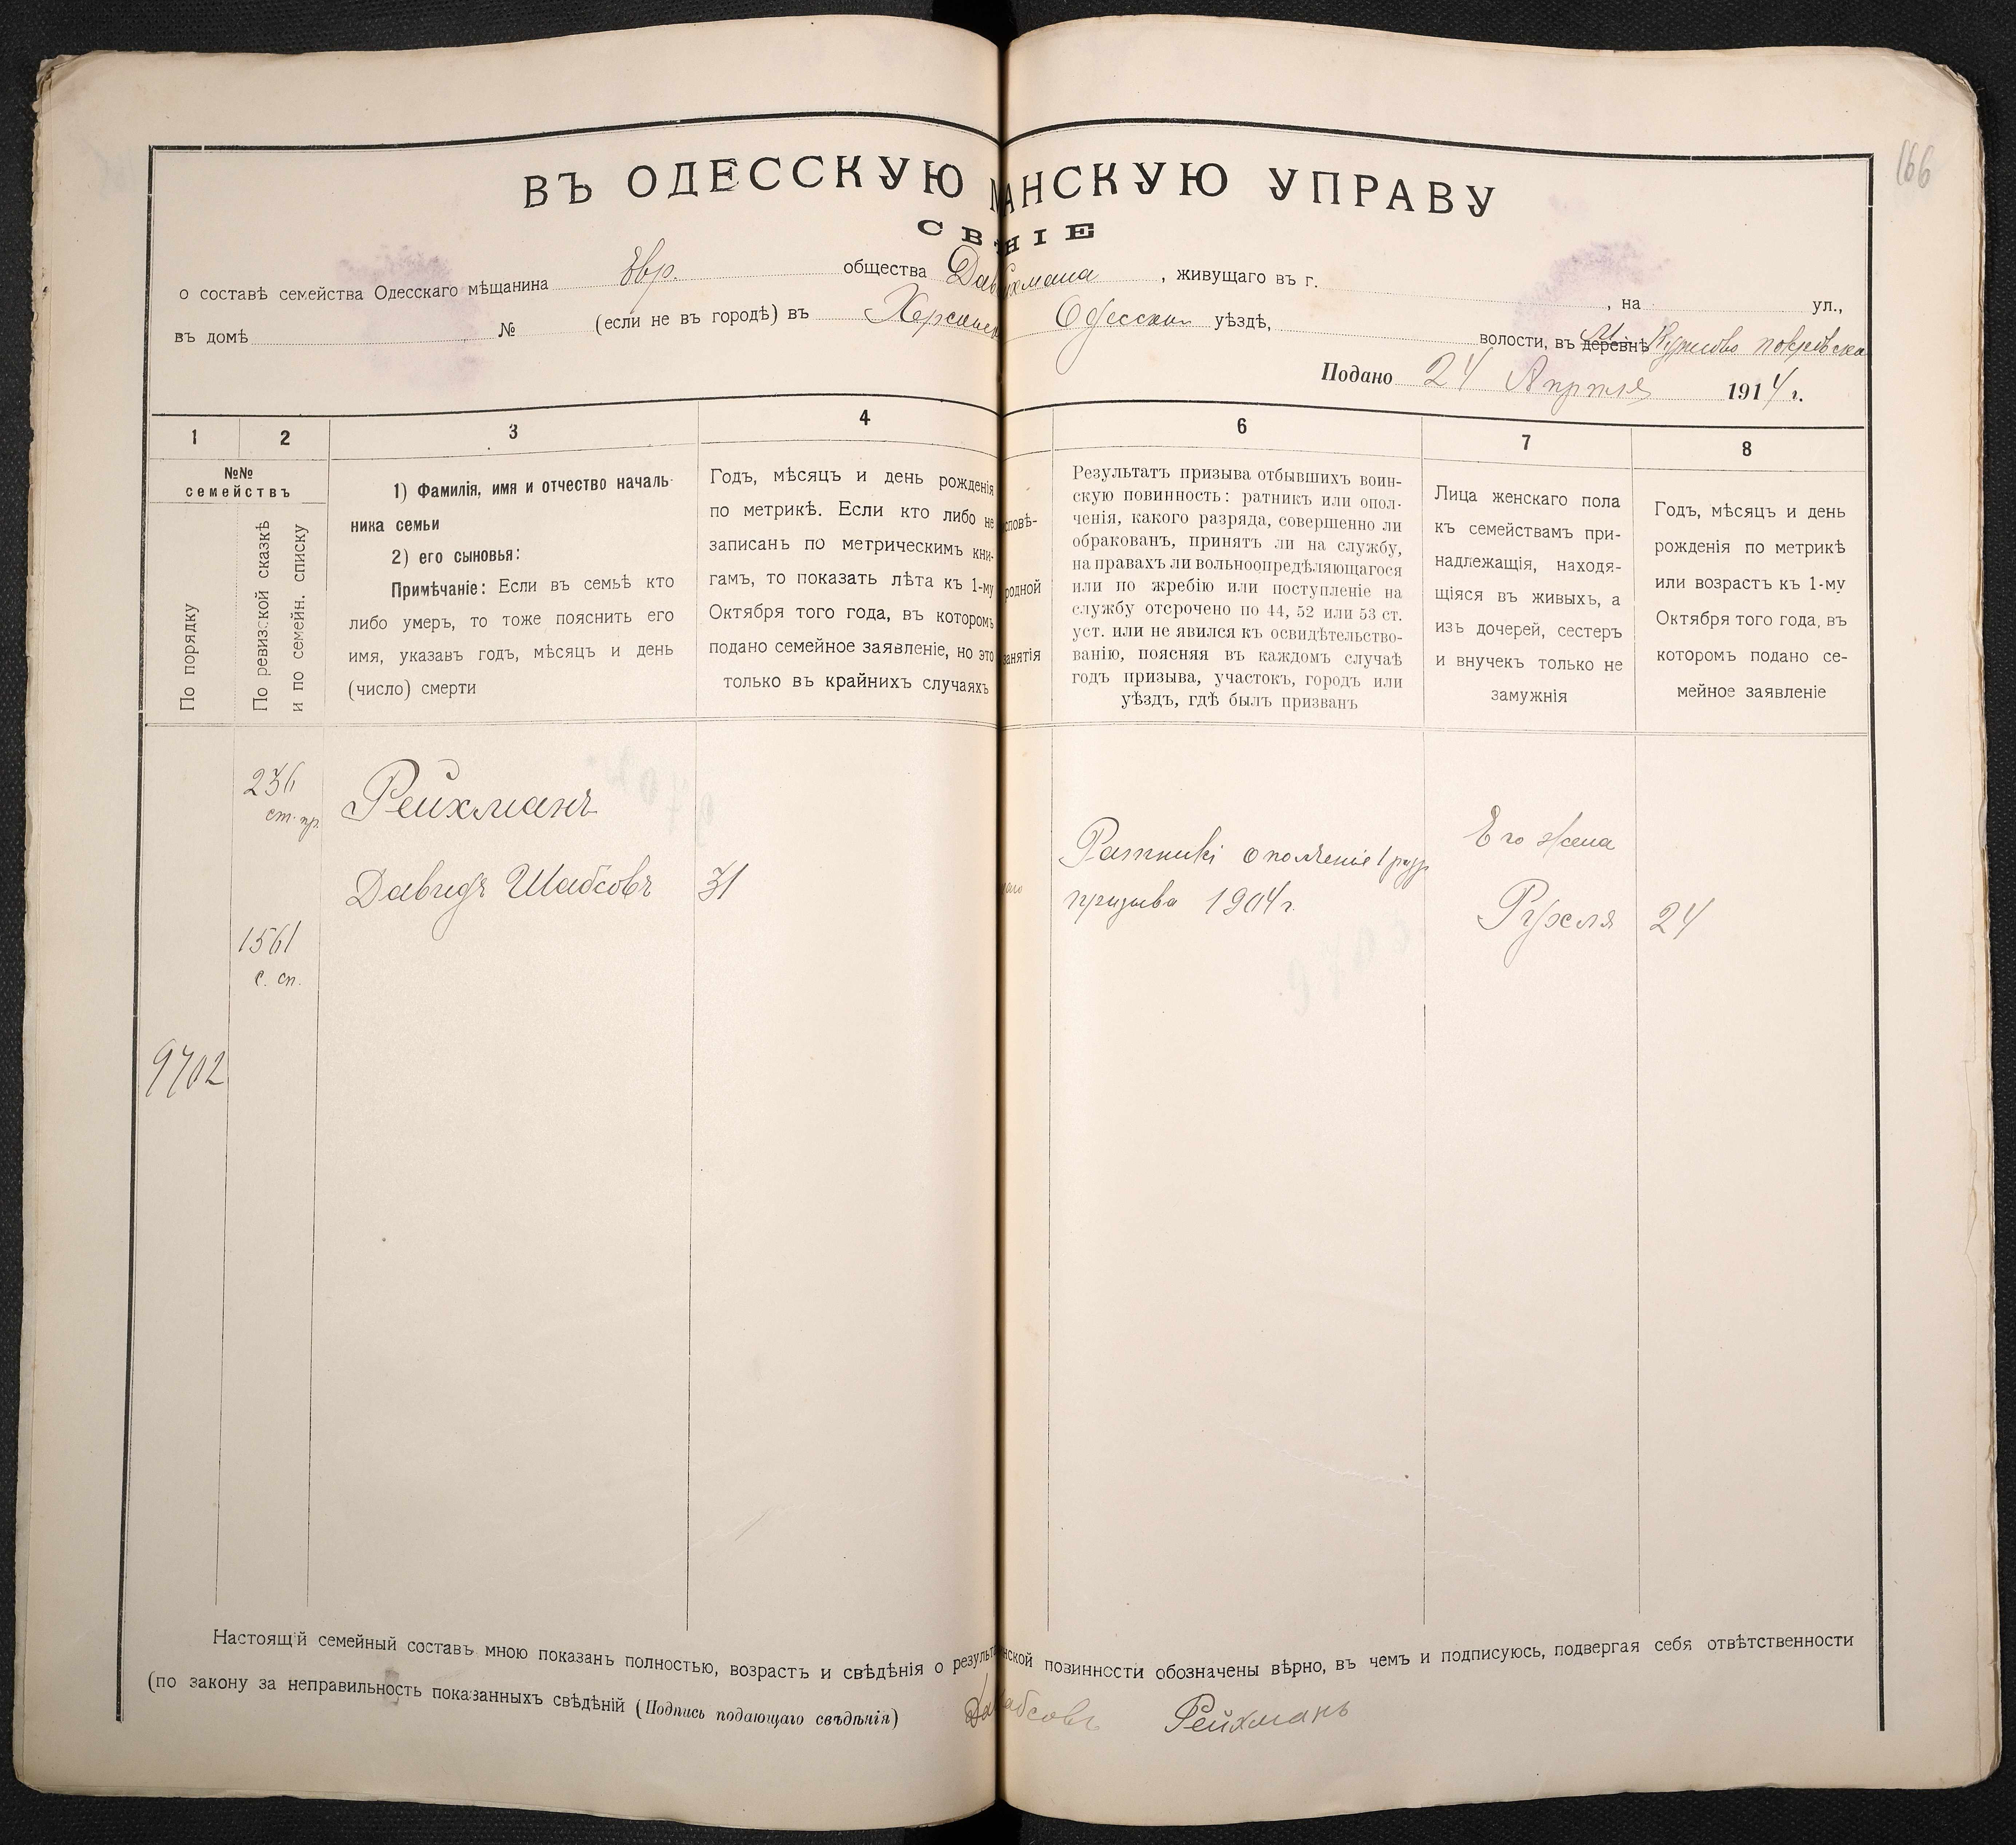 166
ВЪ ОДЕССКУЮ АНСКУЮ УПРАВУ
СВ НІЕ
о составѣ семейства Одесскаго мѣщанина Евр. общества Дав хмана, живущаго въ г. , на ул.,
въ домѣ № (если не въ городѣ) въ Херсонск Одесском уѣздѣ, волости, въ деревнѣ м.
Подано 24 Апрѣля 1914 г.
1 2 3 4 6 7 8
№№ семействъ
По порядку
По ревизской сказкѣ и по семейн. списку
1) Фамилія, имя и отчество началь-
ника семьи
2) его сыновья:
Примѣчаніе: Если въ семьѣ кто
либо умеръ, то тоже пояснить его
имя, указавъ годъ, мѣсяцъ и день
(число) смерти
Годъ, мѣсяцъ и день рожденія
по метрикѣ. Если кто либо не
записанъ по метрическимъ кни-
гамъ, то показать лѣта къ 1-му
Октября того года, въ которомъ
подано семейное заявленіе, но это
только въ крайнихъ случаяхъ
сповѣ-
родной
анятія
Результатъ призыва отбывшихъ воин-
скую повинность: ратникъ или опол-
ченія, какого разряда, совершенно ли
обракованъ, принятъ ли на службу,
на правахъ ли вольноопредѣляющагося
или по жребію или поступленіе на
службу отсрочено по 44, 52 или 53 ст.
уст. или не явился къ освидѣтельство-
ванію, поясняя въ каждомъ случаѣ
годъ призыва, участокъ, городъ или
уѣздъ, гдѣ былъ призванъ
Лица женскаго пола
къ семействамъ при-
надлежащія, находя-
щіяся въ живыхъ, а
изъ дочерей, сестеръ
и внучекъ только не
замужнія
Годъ, мѣсяцъ и день
рожденія по метрикѣ
или возрастъ къ 1-му
Октября того года, въ
которомъ подано се-
мейное заявленіе
236
ст. пр.
Рейхманъ
Давидъ Шабсовъ 31
Ратникі ополченіе 1 разр
призыва 1904 г.
Его жена
Рухля 24
1561
с. сп.
9702
Настоящій семейный составъ мною показанъ полностью, возрастъ и свѣдѣнія о результа нской повинности обозначены вѣрно, въ чемъ и подписуюсь, подвергая себя отвѣтственности
(по закону за неправильность показанныхъ свѣдѣній (Подпись подающаго свѣдѣнія) Да абсовъ Рейхманъ